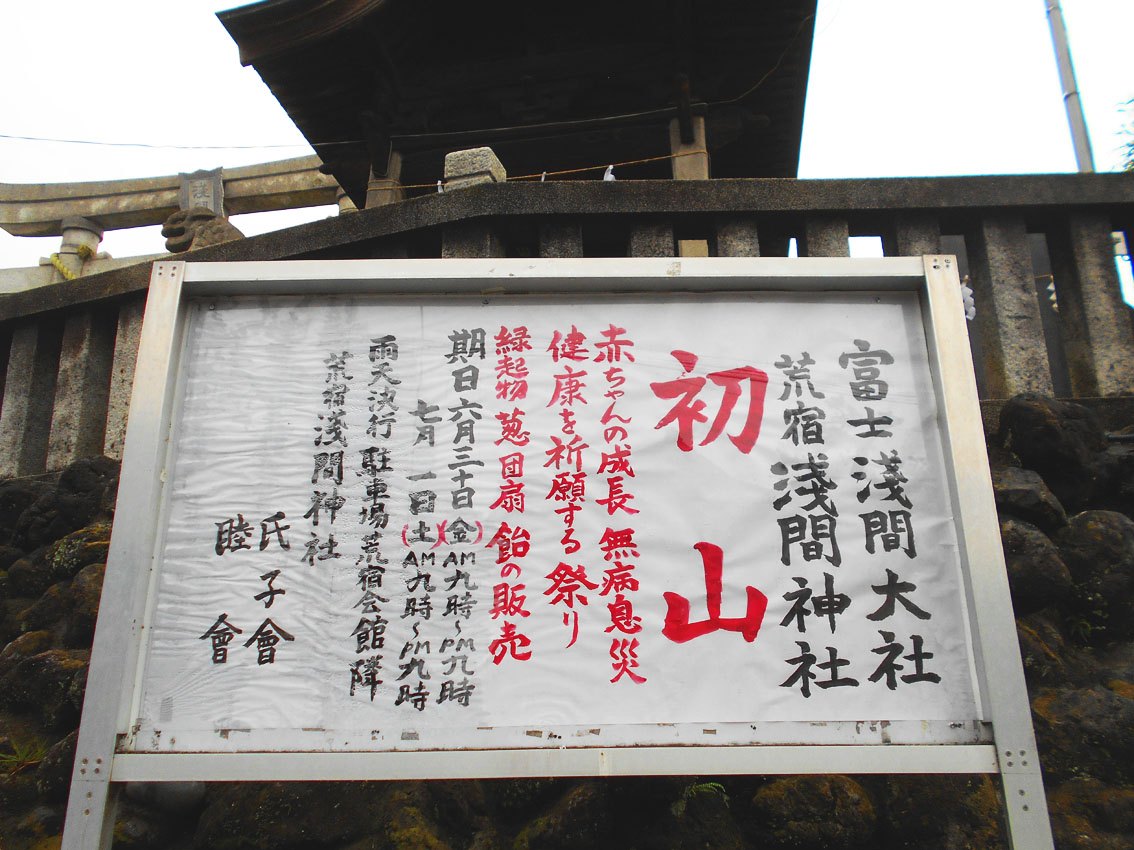 富士淺間大社
荒宿淺間神社
初山
赤ちゃんの成長 無病息災
健康を祈願する祭り
縁起物 葱 団扇 飴の販売
期日 六月三十日(金)AM九時～PM九時
七月 一日(土)AM九時～PM九時
雨天決行 駐車場 荒宿会館隣
荒宿淺間神社
氏子會
睦會